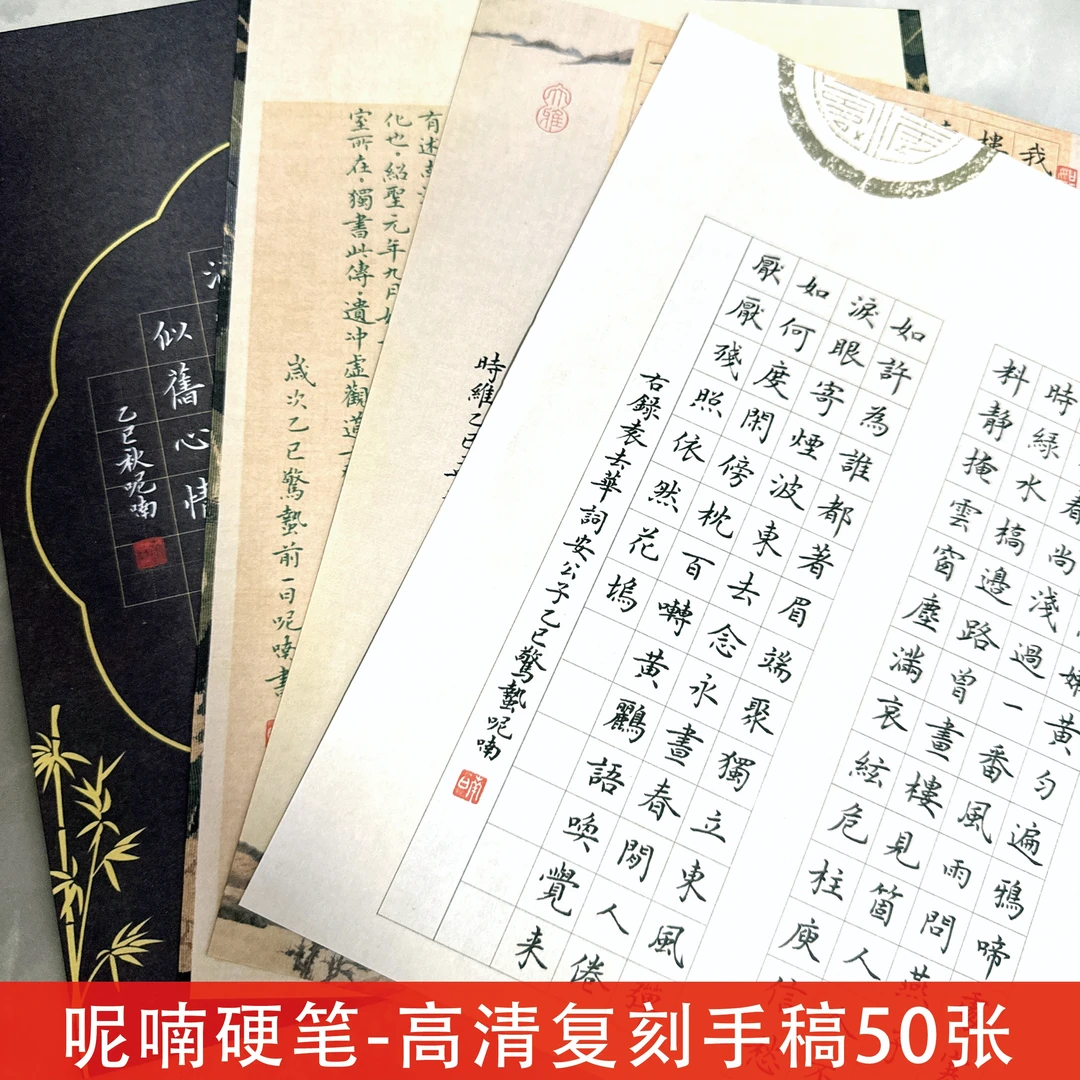 我
樓
嫩黃勻遍鴉啼
春尚淺過一番風雨問燕
時綠水橋邊路曾畫樓見箇人
料靜掩雲窗塵滿哀絃危柱庾信愁
如許為誰都著眉端聚獨立東風
淚眼寄煙波東去念永晝春閒人倦
如何度閑傍枕百囀黃鸝語喚覺来
厭厭殘照依然花塢
右錄袁去華詞安公子乙巳驚蟄呢喃
大雅
時維乙巳
有述
化也·紹聖元年九月
室所在·獨書此傳·遺沖虛觀道士
歲次乙巳驚蟄前一日呢喃書
似舊心情
乙巳秋呢喃
呢喃硬笔-高清复刻手稿50张